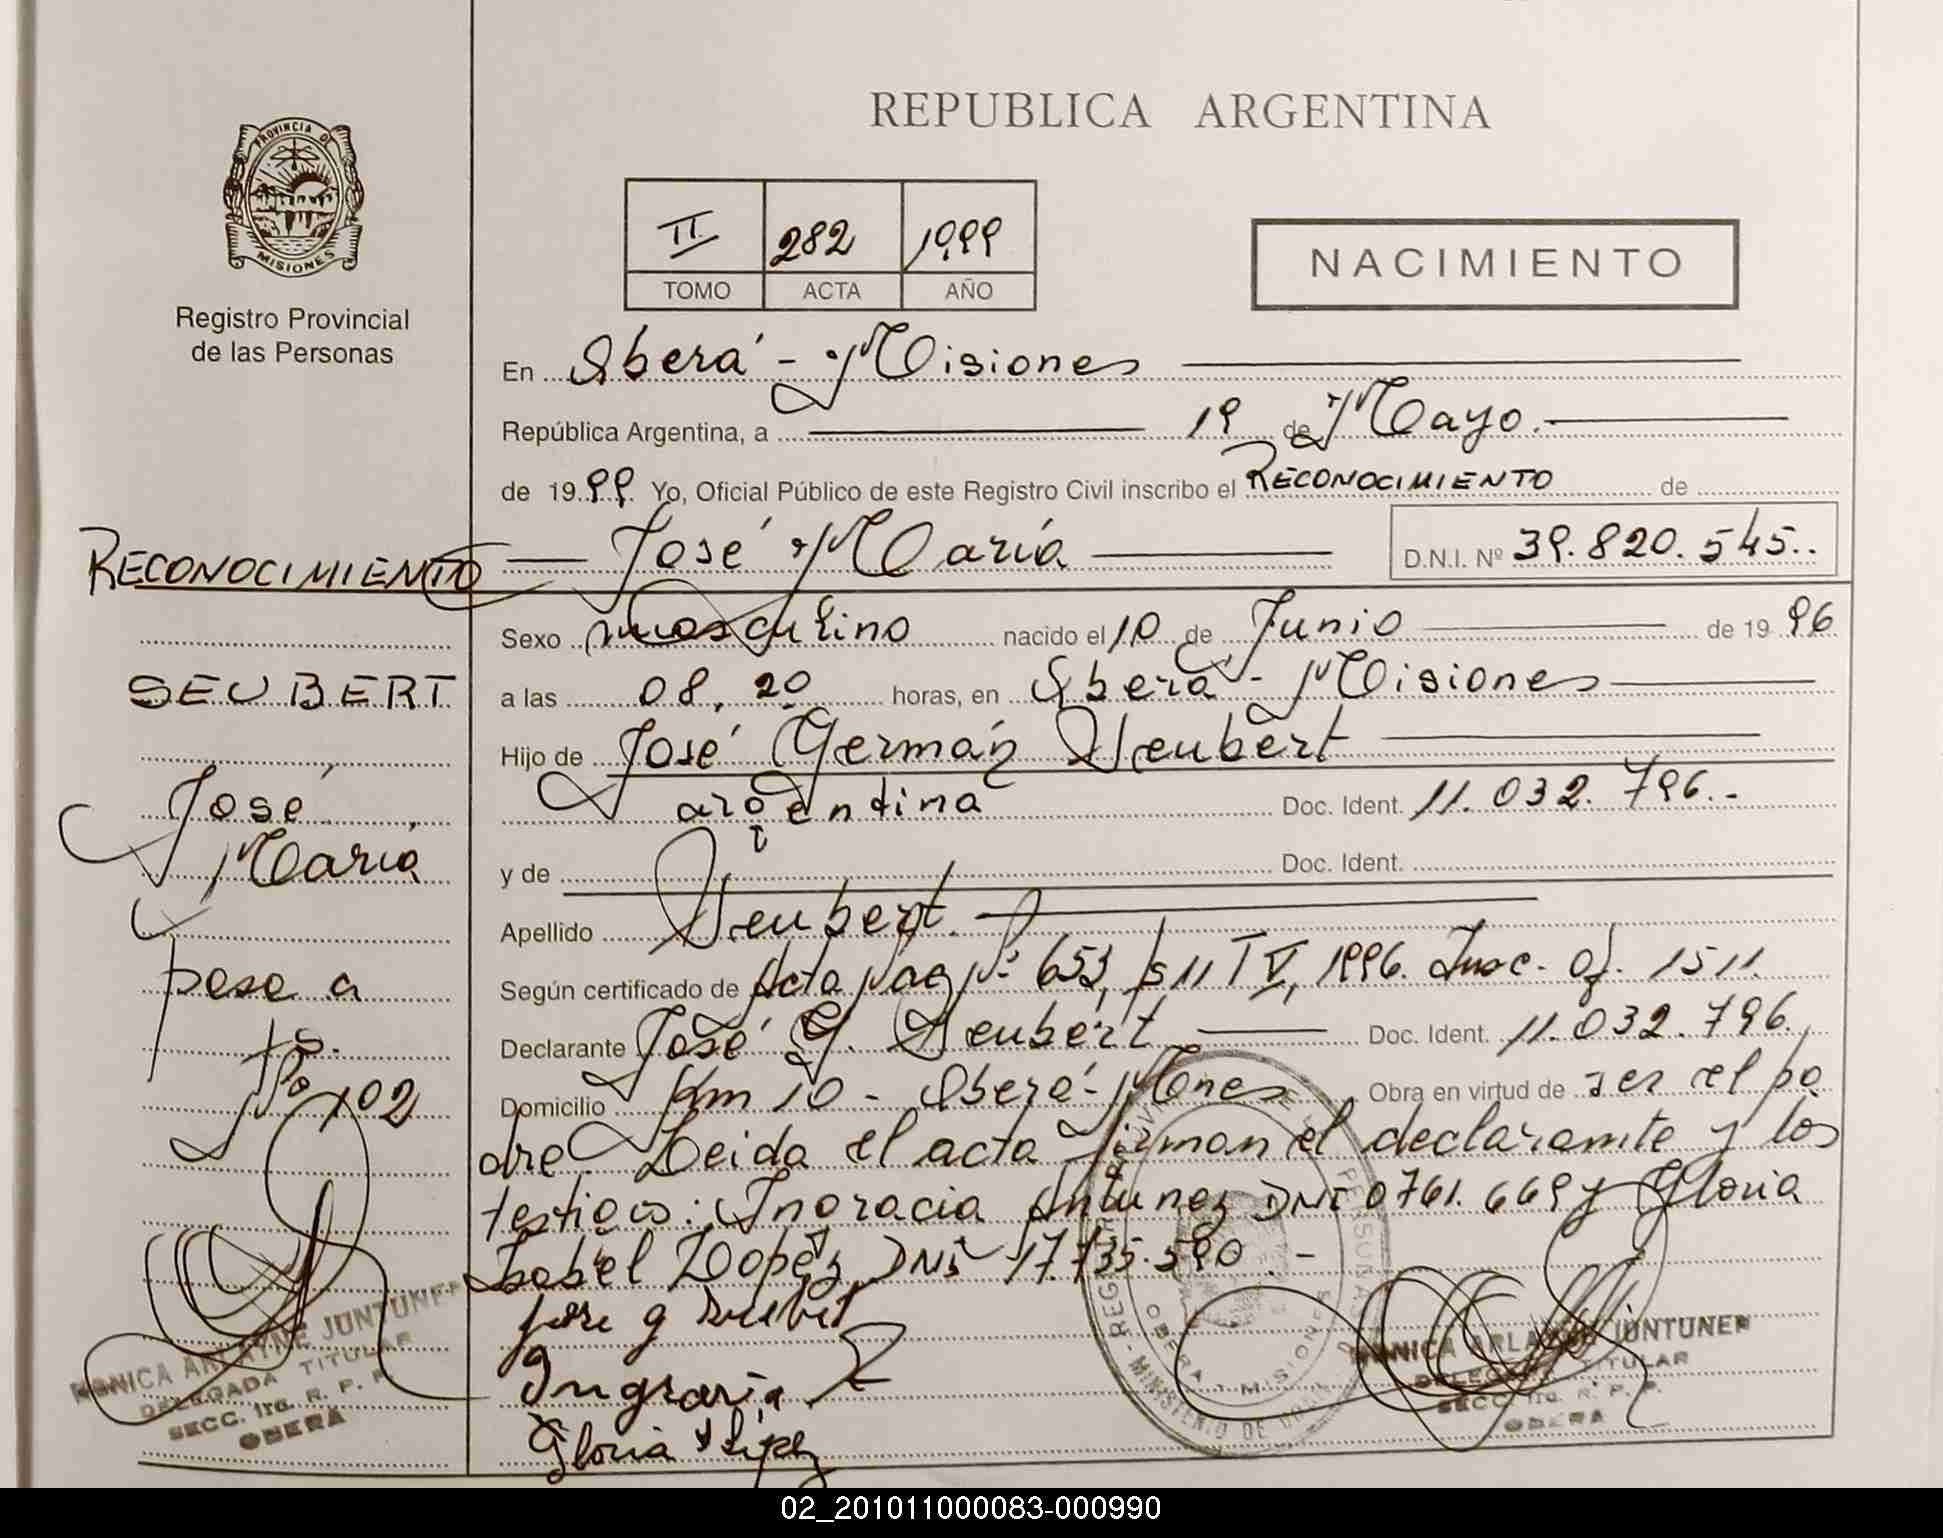 PROVINCIA DE
MISIONES
Registro Provincial
de las Personas
REPUBLICA ARGENTINA
II 282 1999
TOMO ACTA AÑO
NACIMIENTO
En Oberá - Misiones
República Argentina, a 19 de Mayo.
de 1999. Yo, Oficial Público de este Registro Civil inscribo el RECONOCIMIENTO de
José María D.N.I. Nº 39.820.545..
Sexo masculino nacido el 10 de Junio de 1996
a las 08,20 horas, en Oberá - Misiones
Hijo de José Germán Seubert
argentina Doc. Ident. 11.032.796.-
y de Doc. Ident.
Apellido Seubert.
Según certificado de Acta Nº 653, TV, 1996. Insc. Of. 1511.
Declarante José G. Seubert Doc. Ident. 11.032.796.
Domicilio Km 10 - Oberá - Mnes Obra en virtud de ser el pa
dre. Leida el acta firman el declarante y los
testigos: Ingracia Antunez DNI 0761.669 y Gloria
Isabel Lopez DNI 17.735.590.-
jose g seubert
Ingracia
Gloria I López
RECONOCIMIENTO
SEUBERT
José
María
pasa a
102
MONICA ARLAYNE JUNTUNEN
DELEGADA TITULAR
SECC. 1ra. R. P. P.
OBERA
OBERA - MISIONES
MONICA ARLAYNE JUNTUNEN
DELEGADA TITULAR
SECC. 1ra. R. P. P.
OBERA
02_201011000083-000990